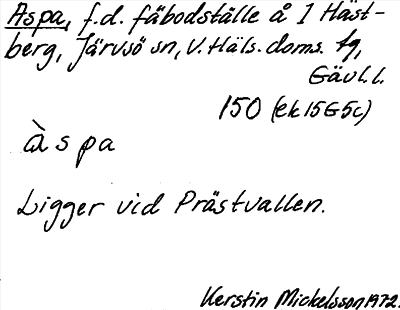 Aspa, f.d. fäbodställe å 1 Häst-
berg, Järvsö sn, V. Häls. doms. tg,
Gävl. l.
150 (ek 15G5c)
àspa
Ligger vid Prästvallen.
Kerstin Mickelsson 1972.